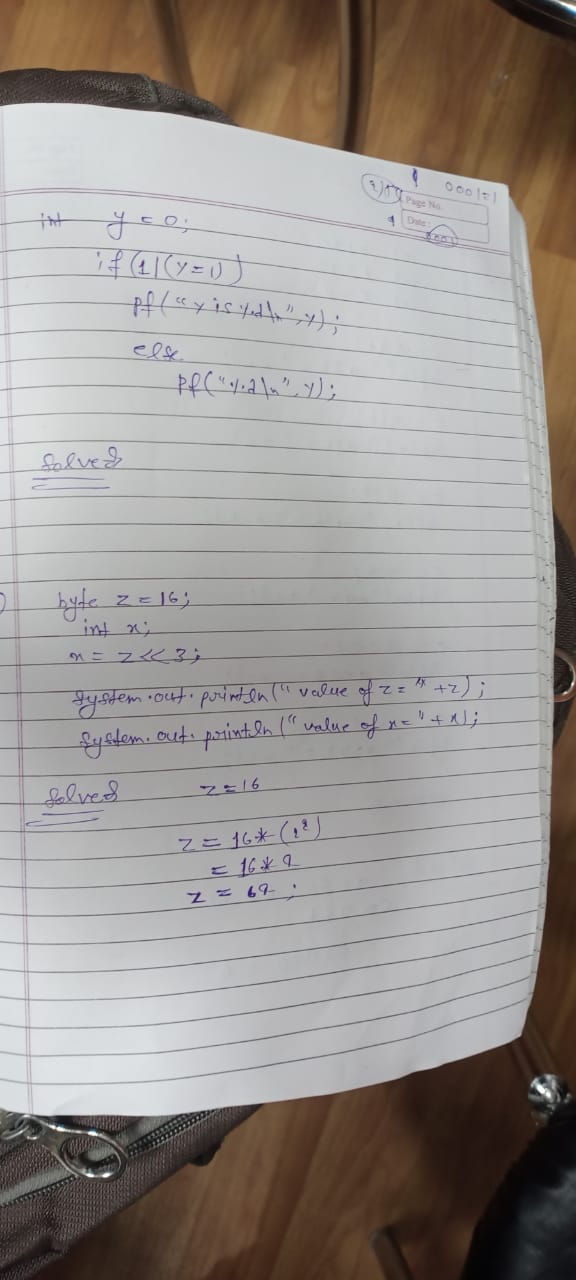 000121
Page No.
Date:
0001
int y = 0;
if (1|(y=1))
pf("y is %d\n", y);
else
pf("%d\n", y);
Solved
byte z = 16;
int x;
x = z << 3;
System.out.println("value of z = " + z);
System.out.println("value of x = " + x);
Solved z = 16
z = 16 * (2²)
= 16 * 4
z = 64;